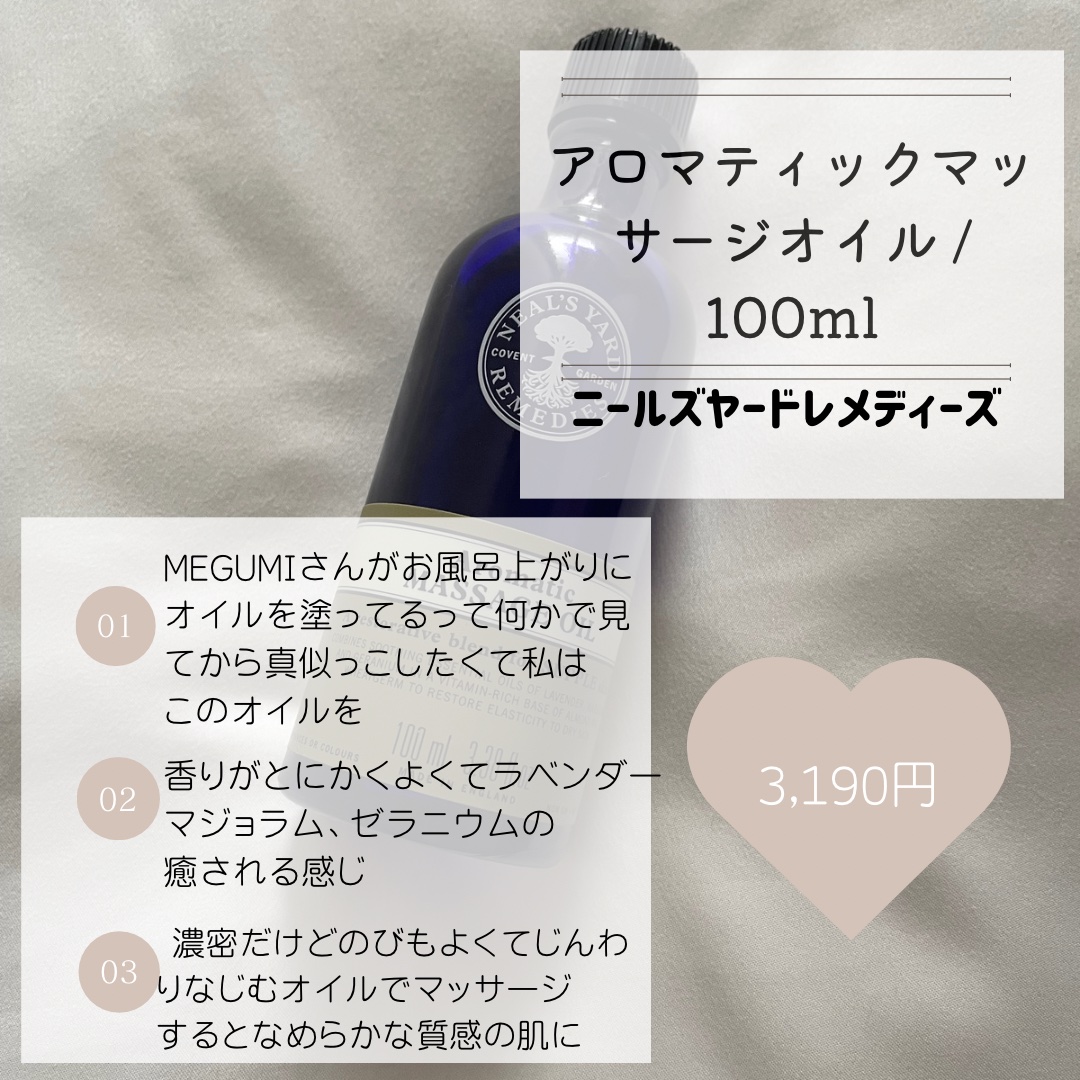 アロマティックマッ
サージオイル /
100ml
ニールズヤードレメディーズ
NEAL'S YARD
COVENT GARDEN
REMEDIES
Aromatic
MASSAGE OIL
100 ml
01
MEGUMIさんがお風呂上がりに
オイルを塗ってるって何かで見
てから真似っこしたくて私は
このオイルを
02
香りがとにかくよくてラベンダー
マジョラム、ゼラニウムの
癒される感じ
03
濃密だけどのびもよくてじんわ
りなじむオイルでマッサージ
するとなめらかな質感の肌に
3,190円